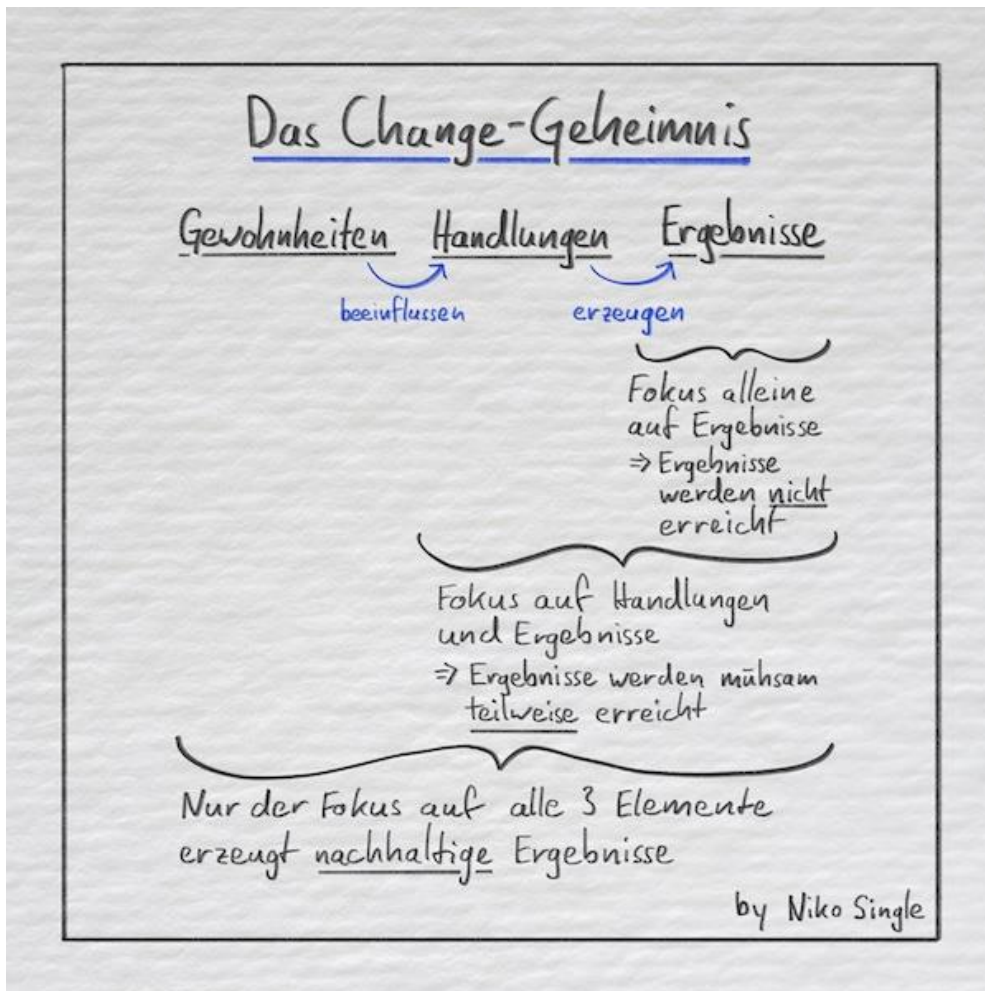 Das Change-Geheimnis
Gewohnheiten Handlungen Ergebnisse
beeinflussen erzeugen
Fokus alleine
auf Ergebnisse
⇒ Ergebnisse
werden nicht
erreicht
Fokus auf Handlungen
und Ergebnisse
⇒ Ergebnisse werden mühsam
teilweise erreicht
Nur der Fokus auf alle 3 Elemente
erzeugt nachhaltige Ergebnisse
by Niko Single